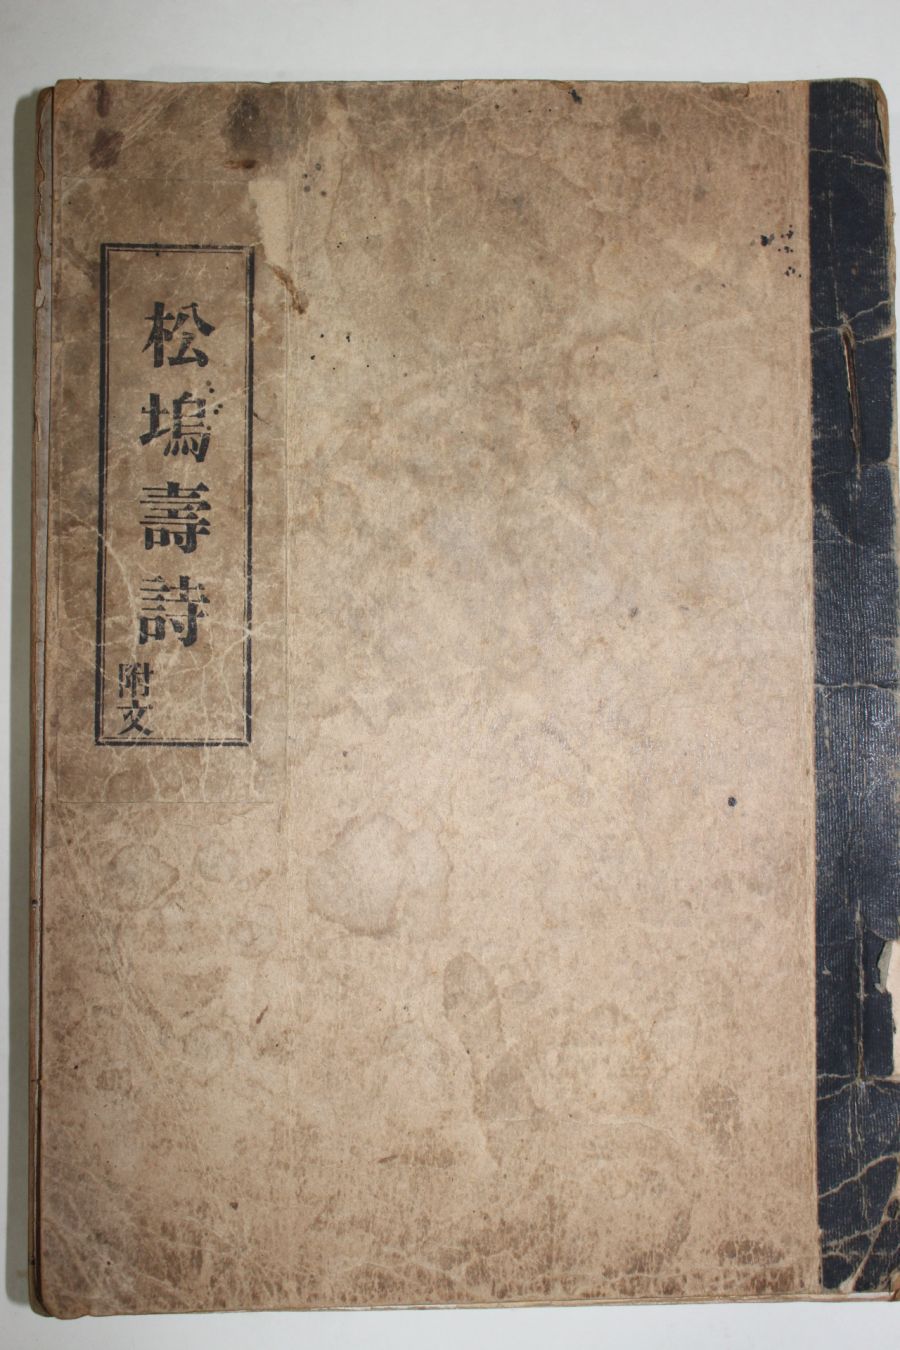 松塢壽詩
附文